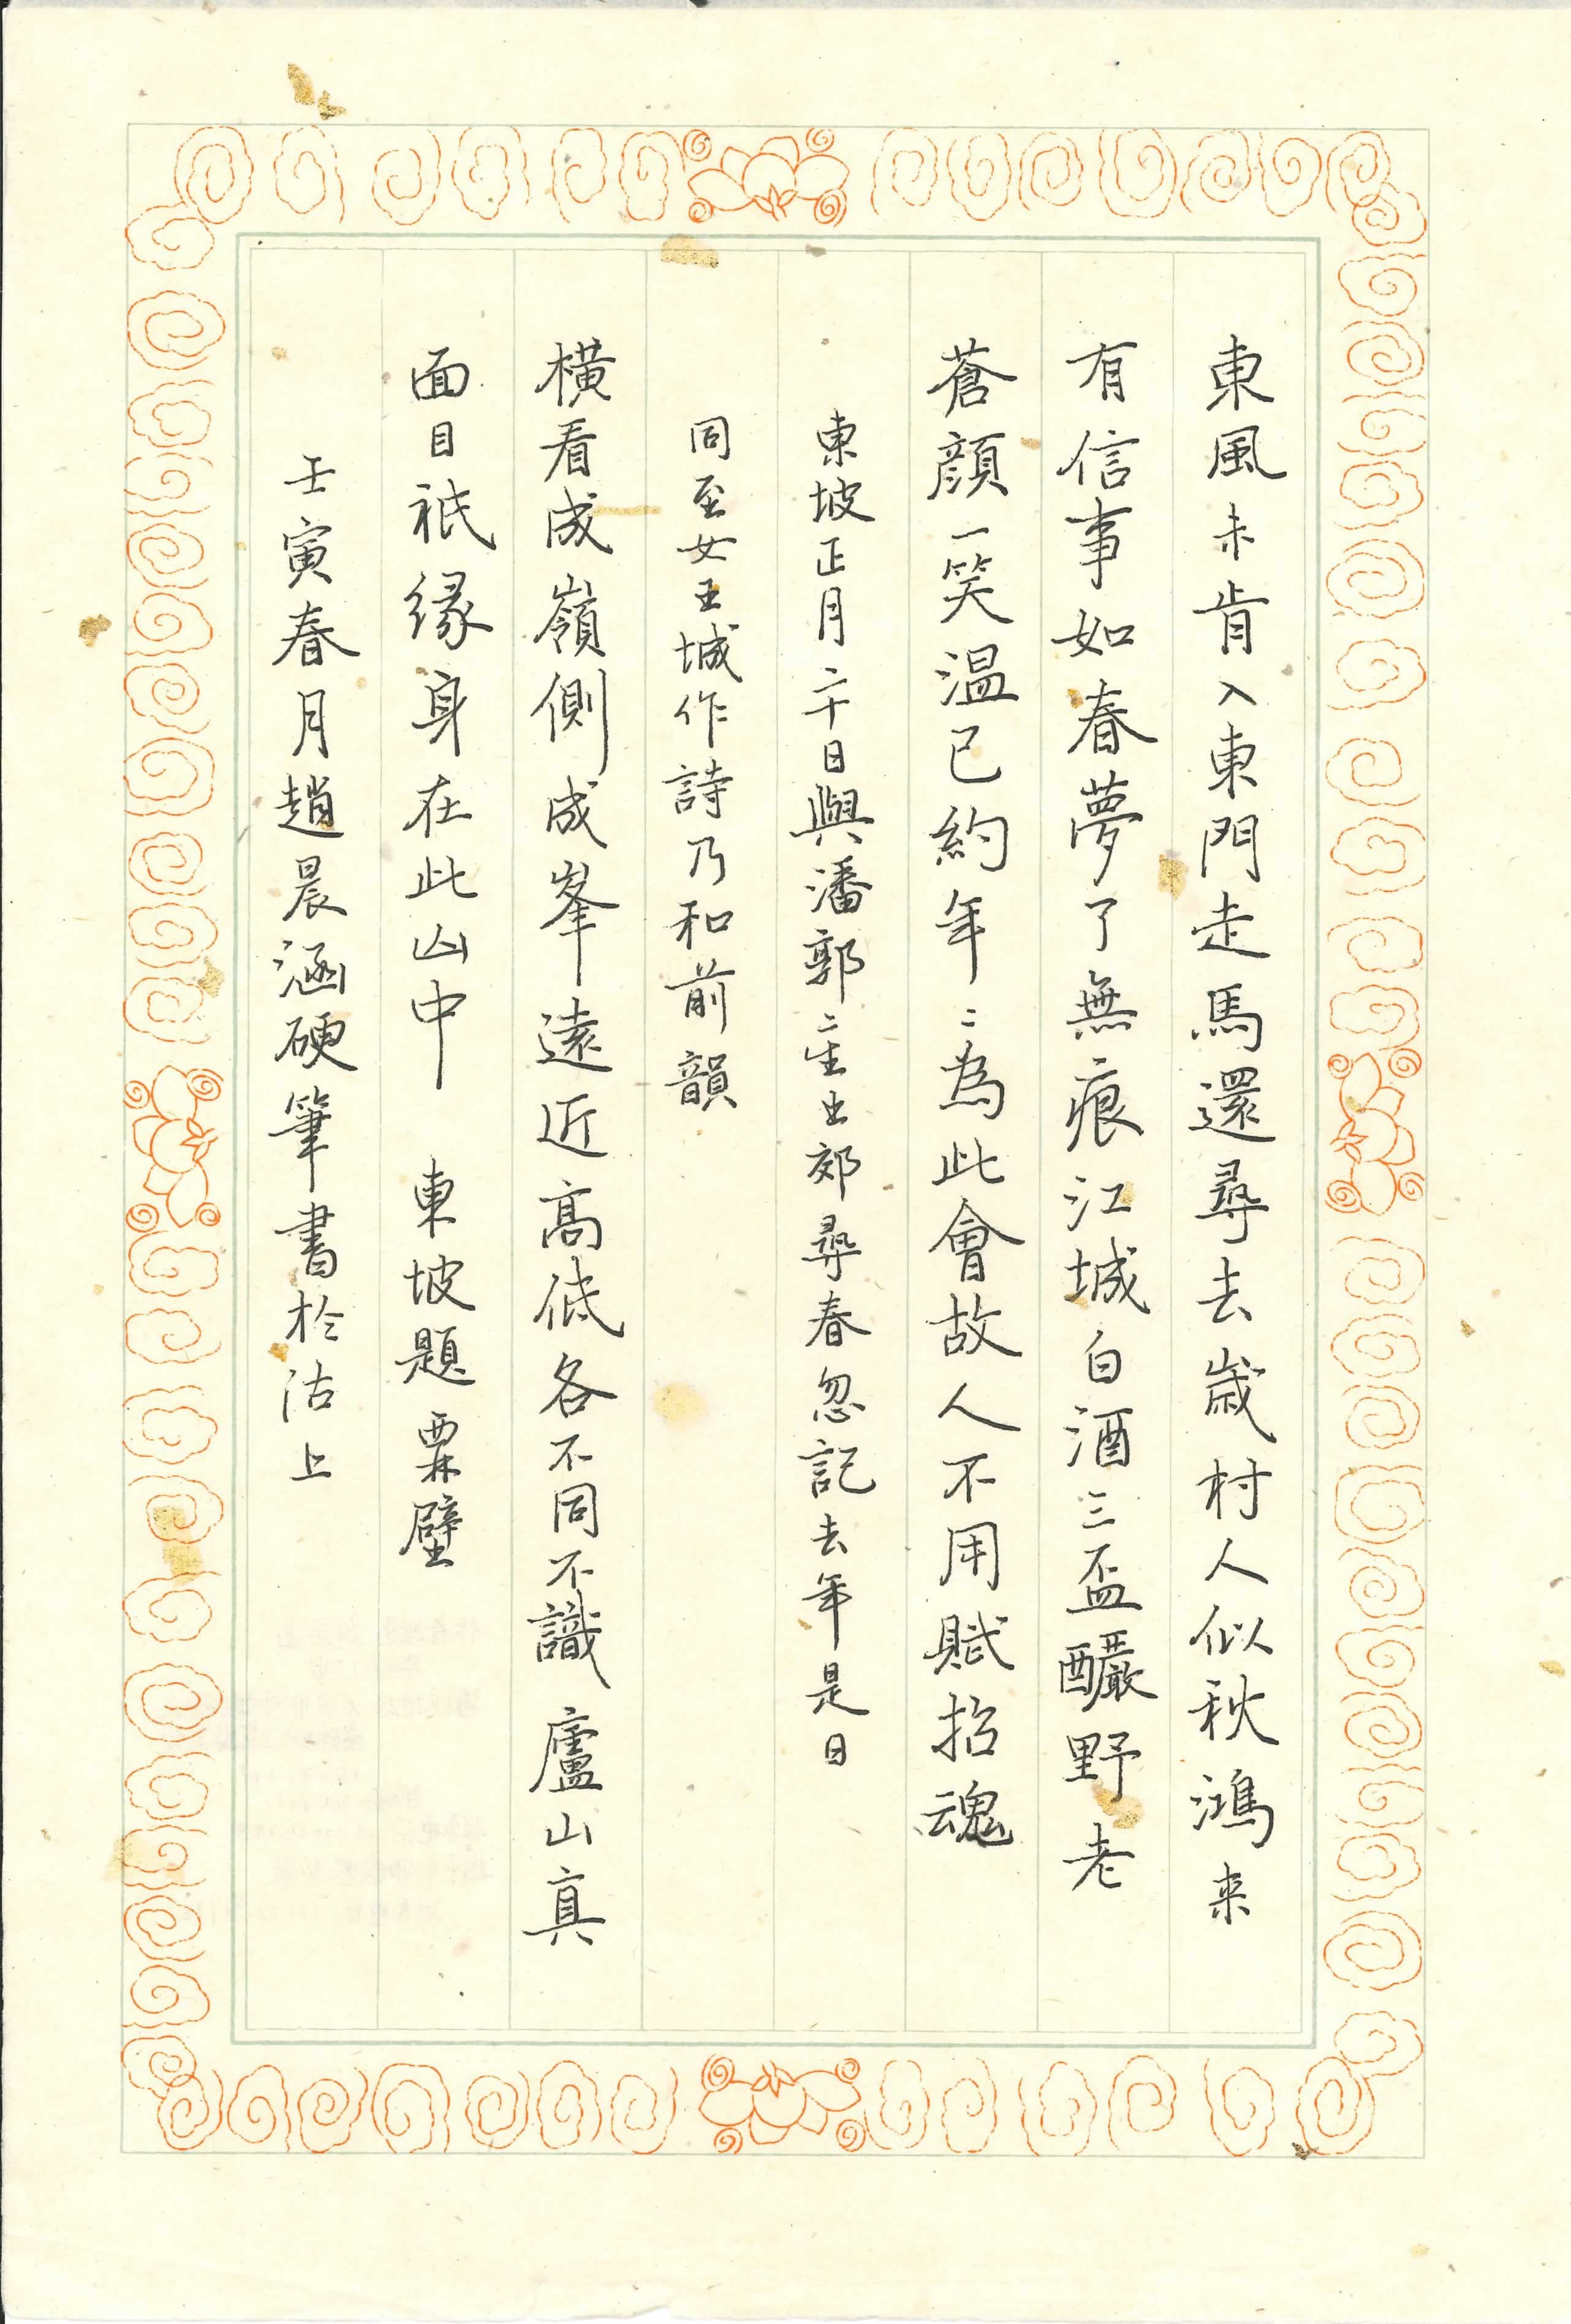 東風未肯入東門走馬還尋去歲村人似秋鴻来
有信事如春夢了無痕江城白酒三盃釅野老
蒼顔一笑温已約年〻為此會故人不用賦招魂
東坡正月二十日與潘郭二生出郊尋春忽記去年是日
同至女王城作詩乃和前韻
橫看成嶺側成峯遠近高低各不同不識廬山真
面目祇緣身在此山中 東坡題 壁
壬寅春月趙晨涵硬筆書於沽上